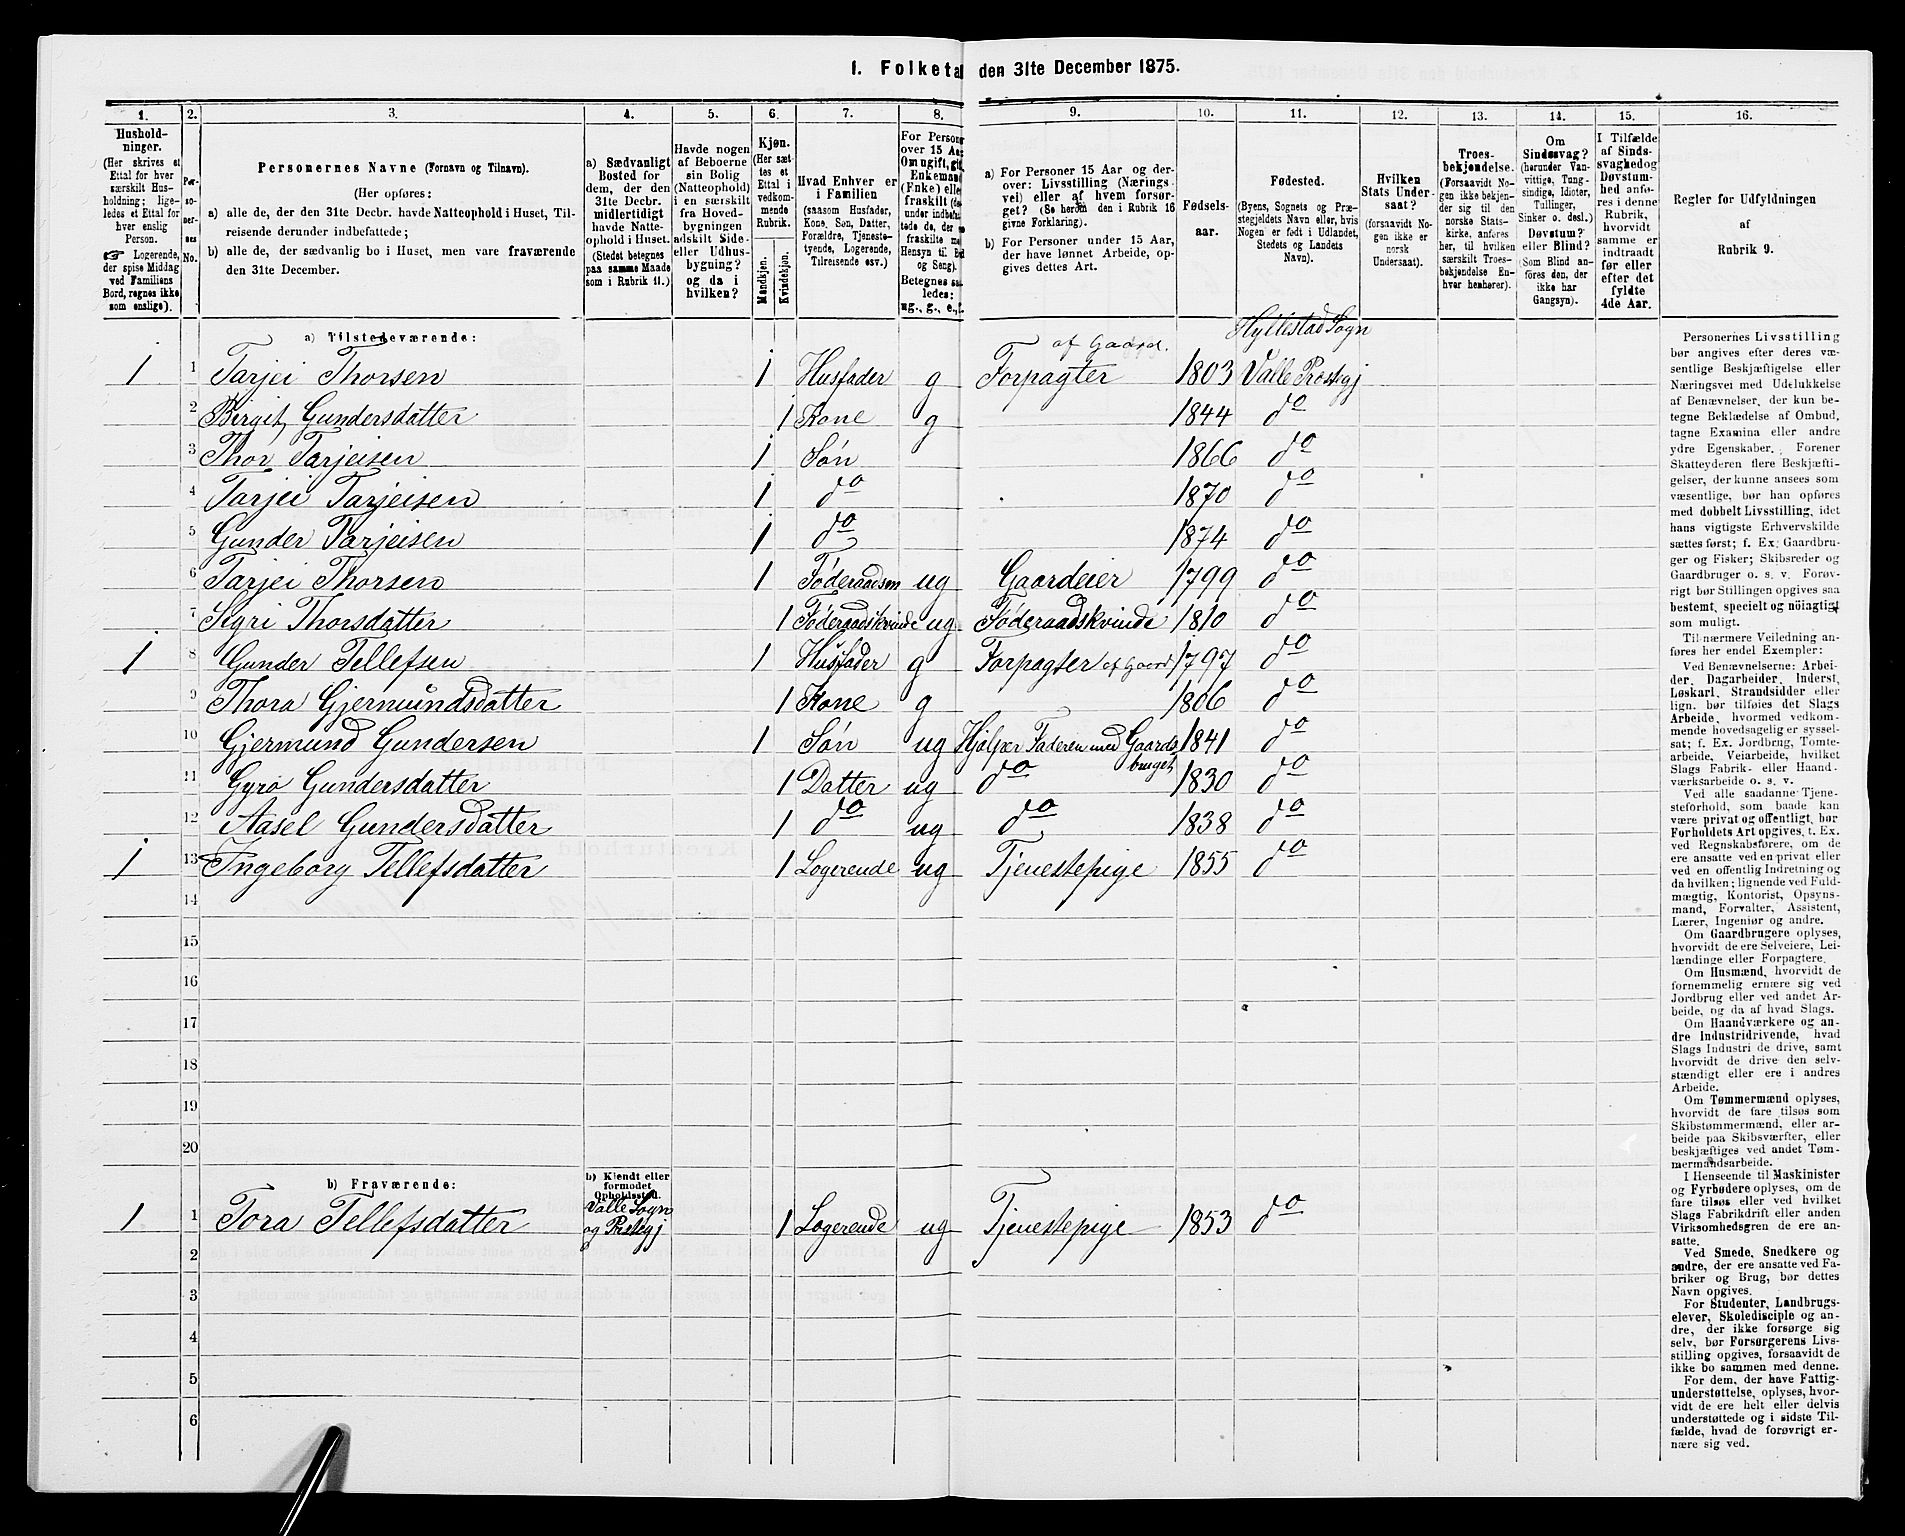 1. Folketal den 31te December 1875.
1. 2. 3. 4. 5. 6. 7. 8. 9. 10. 11. 12. 13. 14. 15. 16.
Hushold-
ninger.
(Her skrives et
Ettal for hver
særskilt Hus-
holdning; lige-
ledes et Ettal for
hver enslig
Person.
☞ Logerende,
der spise Middag
ved Familiens
Bord, regnes ikke
som enslige).
Per-
so-
ner-
nes
No.
Personernes Navne (Fornavn og Tilnavn).
(Her opføres:
a) alle de, der den 31te Decbr. havde Natteophold i Huset, Til-
reisende derunder indbefattede;
b) alle de, der sædvanlig bo i Huset, men vare fraværende
den 31te December.
a) Sædvanligt
Bosted for
dem, der den
31te Decbr.
midlertidigt
havde Natte-
ophold i Huset.
(Stedet betegnes
paa samme Maade
som i Rubrik 11.)
Havde nogen
af Beboerne
sin Bolig
(Natteophold)
i en særskilt
fra Hoved-
bygningen
adskilt Side-
eller Udhus-
bygning?
og da i
hvilken?
Kjøn.
(Her sæt-
tes et
Ettal i
vedkom-
mende
Rubrik.
Mandkjøn.
Kvindekjøn.
Hvad Enhver er
i Familien
(saasom Husfader,
Kone, Søn, Datter,
Forældre, Tjeneste-
tyende, Logerende,
Tilreisende osv.)
For Person
over 15 Aa
Om ugift, gift
Enkemand
(Enke) elle
fraskilt (de
under indbefat
tede de, der e
fraskilte me
Hensyn til B
og Seng).
Betegnes saa
ledes:
ug., g., e., f.
a) For Personer 15 Aar og der-
over: Livsstilling (Nærings-
vei) eller af hvem forsør-
get? (Se herom den i Rubrik 16
givne Forklaring).
b) For Personer under 15 Aar,
der have lønnet Arbeide, op-
gives dettes Art.
Fødsels-
aar.
Fødested.
(Byens, Sognets og Præ-
stegjeldets Navn eller, hvis
Nogen er født i Udlandet,
Stedets og Landets
Navn).
Hvilken
Stats Under-
saat?
(forsaavidt No-
gen ikke er
norsk
Undersaat).
Troes-
bekjendelse.
(Forsaavidt No-
gen ikke bekjen-
der sig til den
norske Stats-
kirke, anføres
her, til hvilken
særskilt Troes-
bekjendelse En-
hver henhører).
Om
Sindssvag?
(herunder Van-
vittige, Tung-
sindige, Idioter,
Tullinger,
Sinker o. desl.)
Døvstum?
eller Blind?
(Som Blind an-
føres den, der
ikke har
Gangsyn).
I Tilfælde
af Sinds-
svaghed og
Døvstum-
hed anfø-
res i denne
Rubrik,
hvorvidt
samme er
indtraadt
før eller
efter det
fyldte
4de Aar.
Regler for Udfyldningen
af
Rubrik 9.
a) Tilstedeværende:
Hyllestad Sogn
af Gaard.
1 1 Tarjei Thorsen 1 Husfader g Forpagter 1803 Valle Præstegj
2 Birgit Gundersdatter 1 Kone g 1844 do
3 Thor Tarjeisen 1 Søn 1866 do
4 Tarjei Tarjeisen 1 do 1870 do
5 Gunder Tarjeisen 1 do 1874 do
6 Tarjei Thorsen 1 Føderaadsm ug Gaardeier 1799 do
7 Sigri Thorsdatter 1 Føderaadskvinde ug Føderaadskvinde 1810 do
1 8 Gunder Tellefsen 1 Husfader g Forpagter af Gaard 1797 do
9 Thora Gjermundsdatter 1 Kone g 1806 do
10 Gjermund Gundersen 1 Søn ug Hjælper Faderen med Gaards- 1841 do
bruget
11 Gyro Gundersdatter 1 Datter ug do 1830 do
12 Aasel Gundersdatter 1 do ug do 1838 do
1 13 Ingeborg Tellefsdatter 1 Logerende ug Tjenestepige 1855 do
14
15
16
17
18
19
20
b) Fraværende:
b) Kjendt eller
formodet
Opholdssted.
Valle Sogn
1 1 Tora Tellefsdatter og Prstegj 1 Logerende ug Tjenestepige 1853 do
2
3
4
5
6
Personernes Livsstilling
bør angives efter deres væ-
sentlige Beskjæftigelse eller
Næringsvei med Udelukkelse
af Benævnelser, der kun be-
tegne Beklædelse af Ombud,
tagne Examina eller andre
ydre Egenskaber. Forener
Skatteyderen flere Beskjæfti-
gelser, der kunne ansees som
væsentlige, bør han opføres
med dobbelt Livsstilling, idet
hans vigtigste Erhvervskilde
sættes først; f. Ex. Gaardbru-
ger og Fisker; Skibsreder og
Gaardbruger o. s. v. Forøv-
rigt bør Stillingen opgives saa
bestemt, specielt og nöiagtigt
som muligt.
Til nærmere Veiledning an-
føres her endel Exempler:
Ved Benævnelserne: Arbei-
der, Dagarbeider, Inderst,
Løskarl, Strandsidder eller
lign. bør tilføies det Slags
Arbeide, hvormed vedkom-
mende hovedsagelig er syssel-
sat; f. Ex. Jordbrug, Tomte-
arbeide, Veiarbeide, hvilket
Slags Fabrik- eller Haand-
værksarbeide o. s. v.
Ved alle saadanne Tjene-
steforhold, som baade kan
være privat og offentligt, bør
Forholdets Art opgives, t. Ex.
ved Regnskabsførere, om de
ere ansatte ved en privat eller
ved en offentlig Indretning og
da hvilken; lignende ved Fuld-
mægtig, Kontorist, Opsyns-
mand, Forvalter, Assistent,
Lærer, Ingeniør og andre.
Om Gaardbrugere oplyses,
hvorvidt de ere Selveiere, Lei-
lændinge eller Forpagtere.
Om Husmænd, hvorvidt de
fornemmelig ernære sig ved
Jordbrug eller ved andet Ar-
beide, og da af hvad Slags.
Om Haandværkere og an-
dre Industridrivende, hvad
Slags Industri de drive, samt
hvorvidt de drive den selv-
stændigt eller ere i andres
Arbeide.
Om Tømmermænd oplyses,
hvorvidt de fare tilsøs som
Skibstømmermænd, eller ar-
beide paa Skibsværfter, eller
beskjæftiges ved andet Tøm-
mermandsarbeide.
I Henseende til Maskinister
og Fyrbødere oplyses, om de
fare tilsøs eller ved hvilket
Slags Fabrikdrift eller anden
Virksomhedsgren de ere an-
satte.
Ved Smede, Snedkere og
andre, der ere ansatte ved Fa-
briker og Brug, bør dettes
Navn opgives.
For Studenter, Landbrugs-
elever, Skoledisciple og an-
dre, der ikke forsørge sig
selv, bør Forsørgerens Livs-
stilling opgives, forsaavidt de
ikke bo sammen med denne.
For dem, der have Fattig-
understøttelse, oplyses, hvor-
vidt de ere helt eller delvis
understøttede og i sidste Til-
fælde, hvad de forøvrigt er-
nære sig ved.